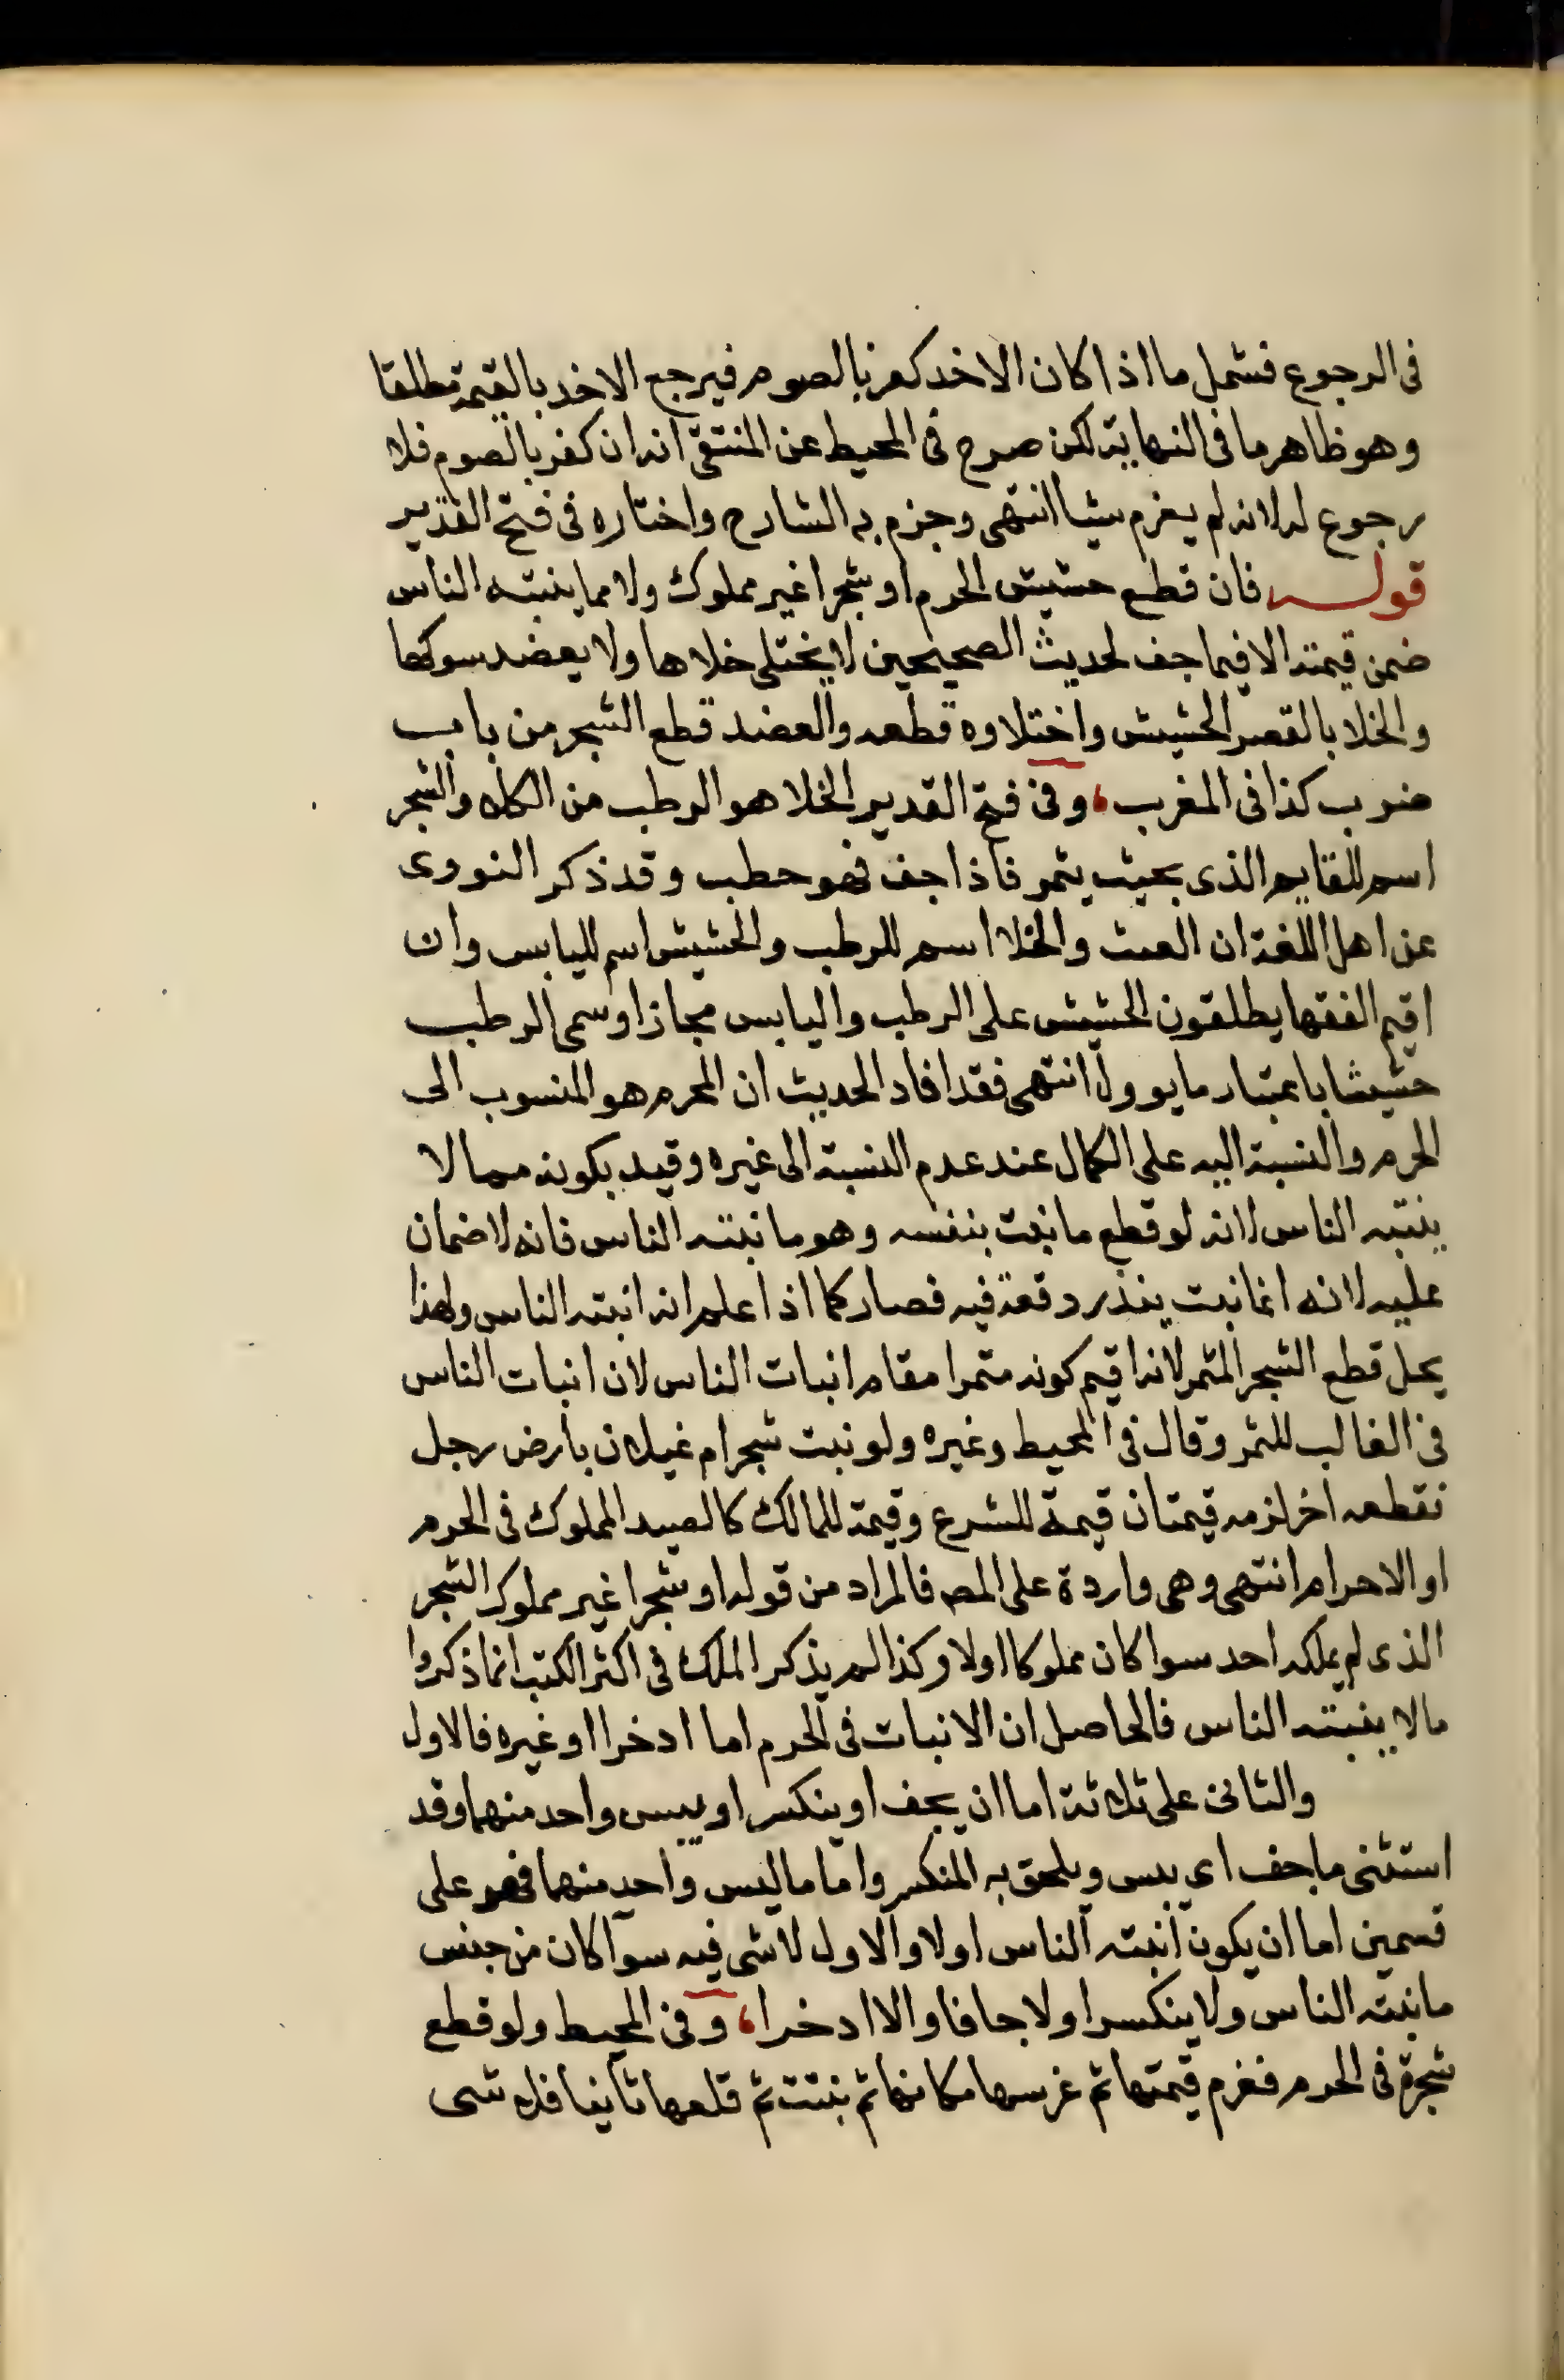 فى الرجوع فشمل ما اذا كان الاخد كفر بالصوم فيرجع الاخد بالقيمة مطلقا
وهو ظاهر ما فى النهاية لكن صرح فى المحيط عن المنتقى انه ان كفر بالصوم فلا
رجوع له لانه لم يغرم شيا انتهى وجزم به الشارح واختاره فى فتح القدير
قوله فان قطع حشيش الحرم او شجرا غير مملوك ولا مما ينبته الناس
ضمن قيمته الا فيما جف لحديث الصحيحين لا يختلى خلاها ولا يعضد سوكها
والخلا بالقصر الحشيش واختلاوه قطعه والعضد قطع الشجر من باب
ضرب كذا فى المغرب، وفى فتح القدير الخلا هو الرطب من الكلا والشجر
اسم للقايم الذى بحيث يثمر فاذا جف فهو حطب وقد ذكر النووى
عن اهل اللغة ان العث والخلا اسم للرطب والحشيش اسم لليابس وان
اقيم الفقها يطلقون الحشيش على الرطب واليابس مجازا وسمى الرطب
حشيشا باعتبار ما يوول انتهى فقد افاد الحديث ان المحرم هو المنسوب الى
الحرم والنسبة اليه على الكمال عند عدم النسبة الى غيره وقيد بكونه مما لا
ينبته الناس لانه لو قطع ما نبت بنفسه وهو ما نبته الناس فانه لا ضمان
عليه لانه انما نبت ببذر دقعة فيه فصار كما اذا علم انه انبته الناس ولهذا
يحل قطع الشجر المثمر لانه اقيم كونه مثمرا مقام انبات الناس لان انبات الناس
فى الغالب للثمر وقال فى المحيط وغيره ولو نبت شجر ام غيلان بارض رجل
فقطعه اخر لزمه قيمتان قيمة للشرع وقيمة للمالك كالصيد المملوك فى الحرم
او الاحرام انتهى وهى واردة على المصـ فالمراد من قوله او شجرا غير مملوك الشجر
الذى لم يملكه احد سوا كان مملوكا اولا وكذا لم يذكر الملك فى اكثر الكتب انما ذكروا
مالا ينبته الناس فالحاصل ان الانبات فى الحرم اما ادخرا او غيره فالاول
والثانى على ثلاثة اما ان يجف او ينكسر او ليس واحد منهما وقد
استثنى ما جف اي يبس ويلحق به المنكسر واما ما ليس واحد منهما فهو على
قسمين اما ان يكون انبته الناس اولا والاول لا شى فيه سوا كان من جنس
ما نبته الناس ولا ينكسرا ولا جافا والا ادخرا، وفى المحيط ولو قطع
شجرة فى الحرم فغرم قيمتها ثم غرسها مكانها ثم نبتت ثم قلعها ثانيا فلا شى